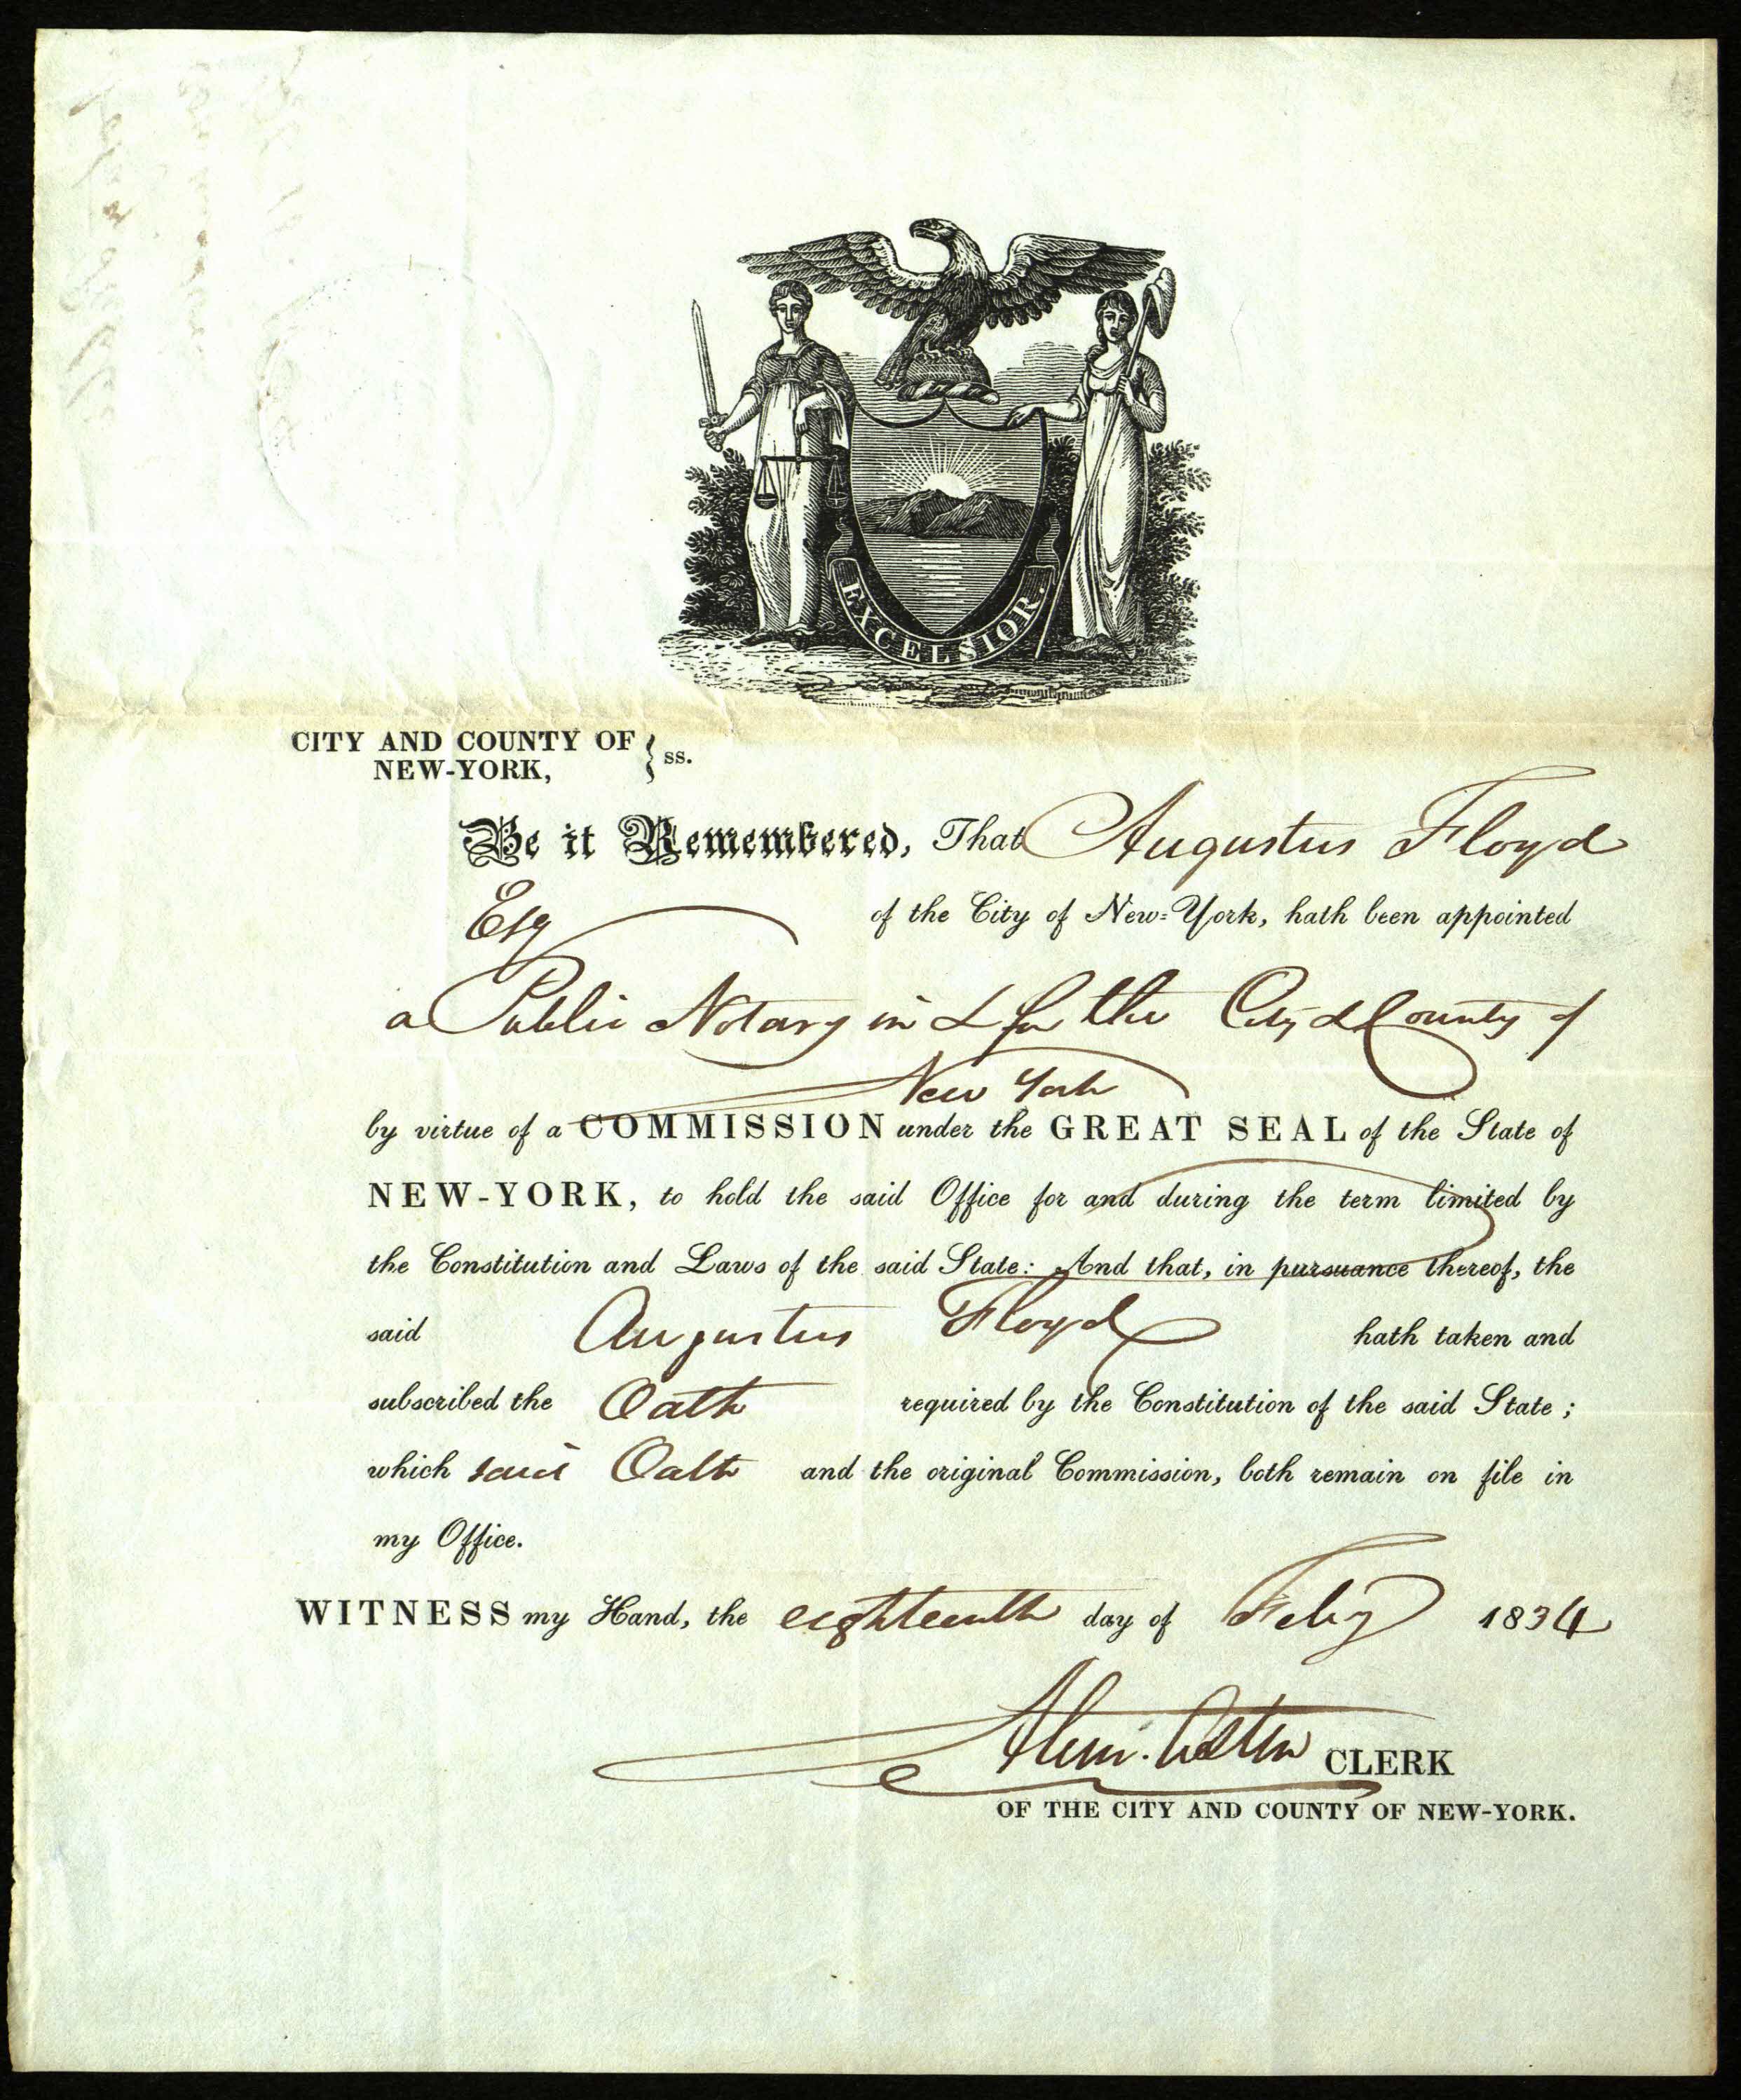 EXCELSIOR.
CITY AND COUNTY OF } ss.
NEW-YORK,
Be it Remembered, That Augustus Floyd
Esq of the City of New-York, hath been appointed
a Public Notary in & for the City & County of
New York
by virtue of a COMMISSION under the GREAT SEAL of the State of
NEW-YORK, to hold the said Office for and during the term limited by
the Constitution and Laws of the said State: And that, in pursuance thereof, the
said Augustus Floyd hath taken and
subscribed the Oath required by the Constitution of the said State;
which said Oath and the original Commission, both remain on file in
my Office.
WITNESS my Hand, the eighteenth day of Feby 1834
CLERK
OF THE CITY AND COUNTY OF NEW-YORK.